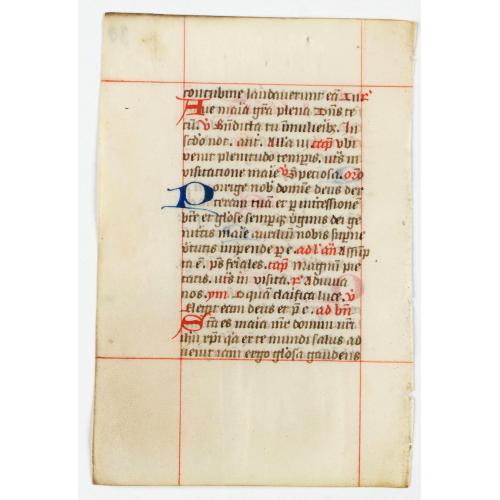 concubine laudaverunt eā
Aue maria grā plena dn̄s te
cū. v̄ Bn̄dicta tu ī mulieribz. In
scdo not. ant. Alla iii cap̄ vbi
venit plenitudo temporis. ut s̄ in
visitatione marie v̄ speciosa. orō
Porrige nob̄ domine deus dex
teram tuā et p̄ intercessionē
bt̄e et gl̄ose semperqz v̄ginis dei ge
nit̄cis marie auxiliū nobis sup̄ne
v̄tutis impende p̄ e. ad l' an̄ Assūp
ta ē. ps̄ feriales. cap̄ magnū pie
tatis. ut s̄ in visita. r̄ Adiuua
nos. ym̄ O quā clarifica luce. v̄
Elegit eam deus et p̄ e. ad bn̄
Sc̄ta es maria mr̄ domini nr̄i
ih̄u xp̄i q̄a ex te mundi salus ad
uenit eam ergo gl̄osa gaudens